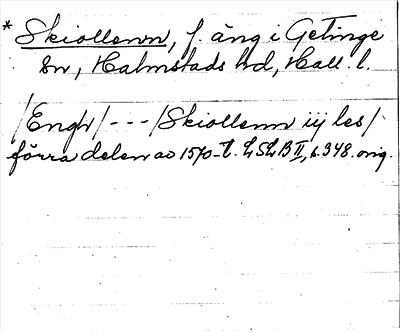 * Skiollenn, f. äng i Getinge
sn, Halmstads hd, Hall. l.
/Engh/ - - - /Skiollenn iij les/
förra delen av 1570-t. LSLB II, s. 348. orig.